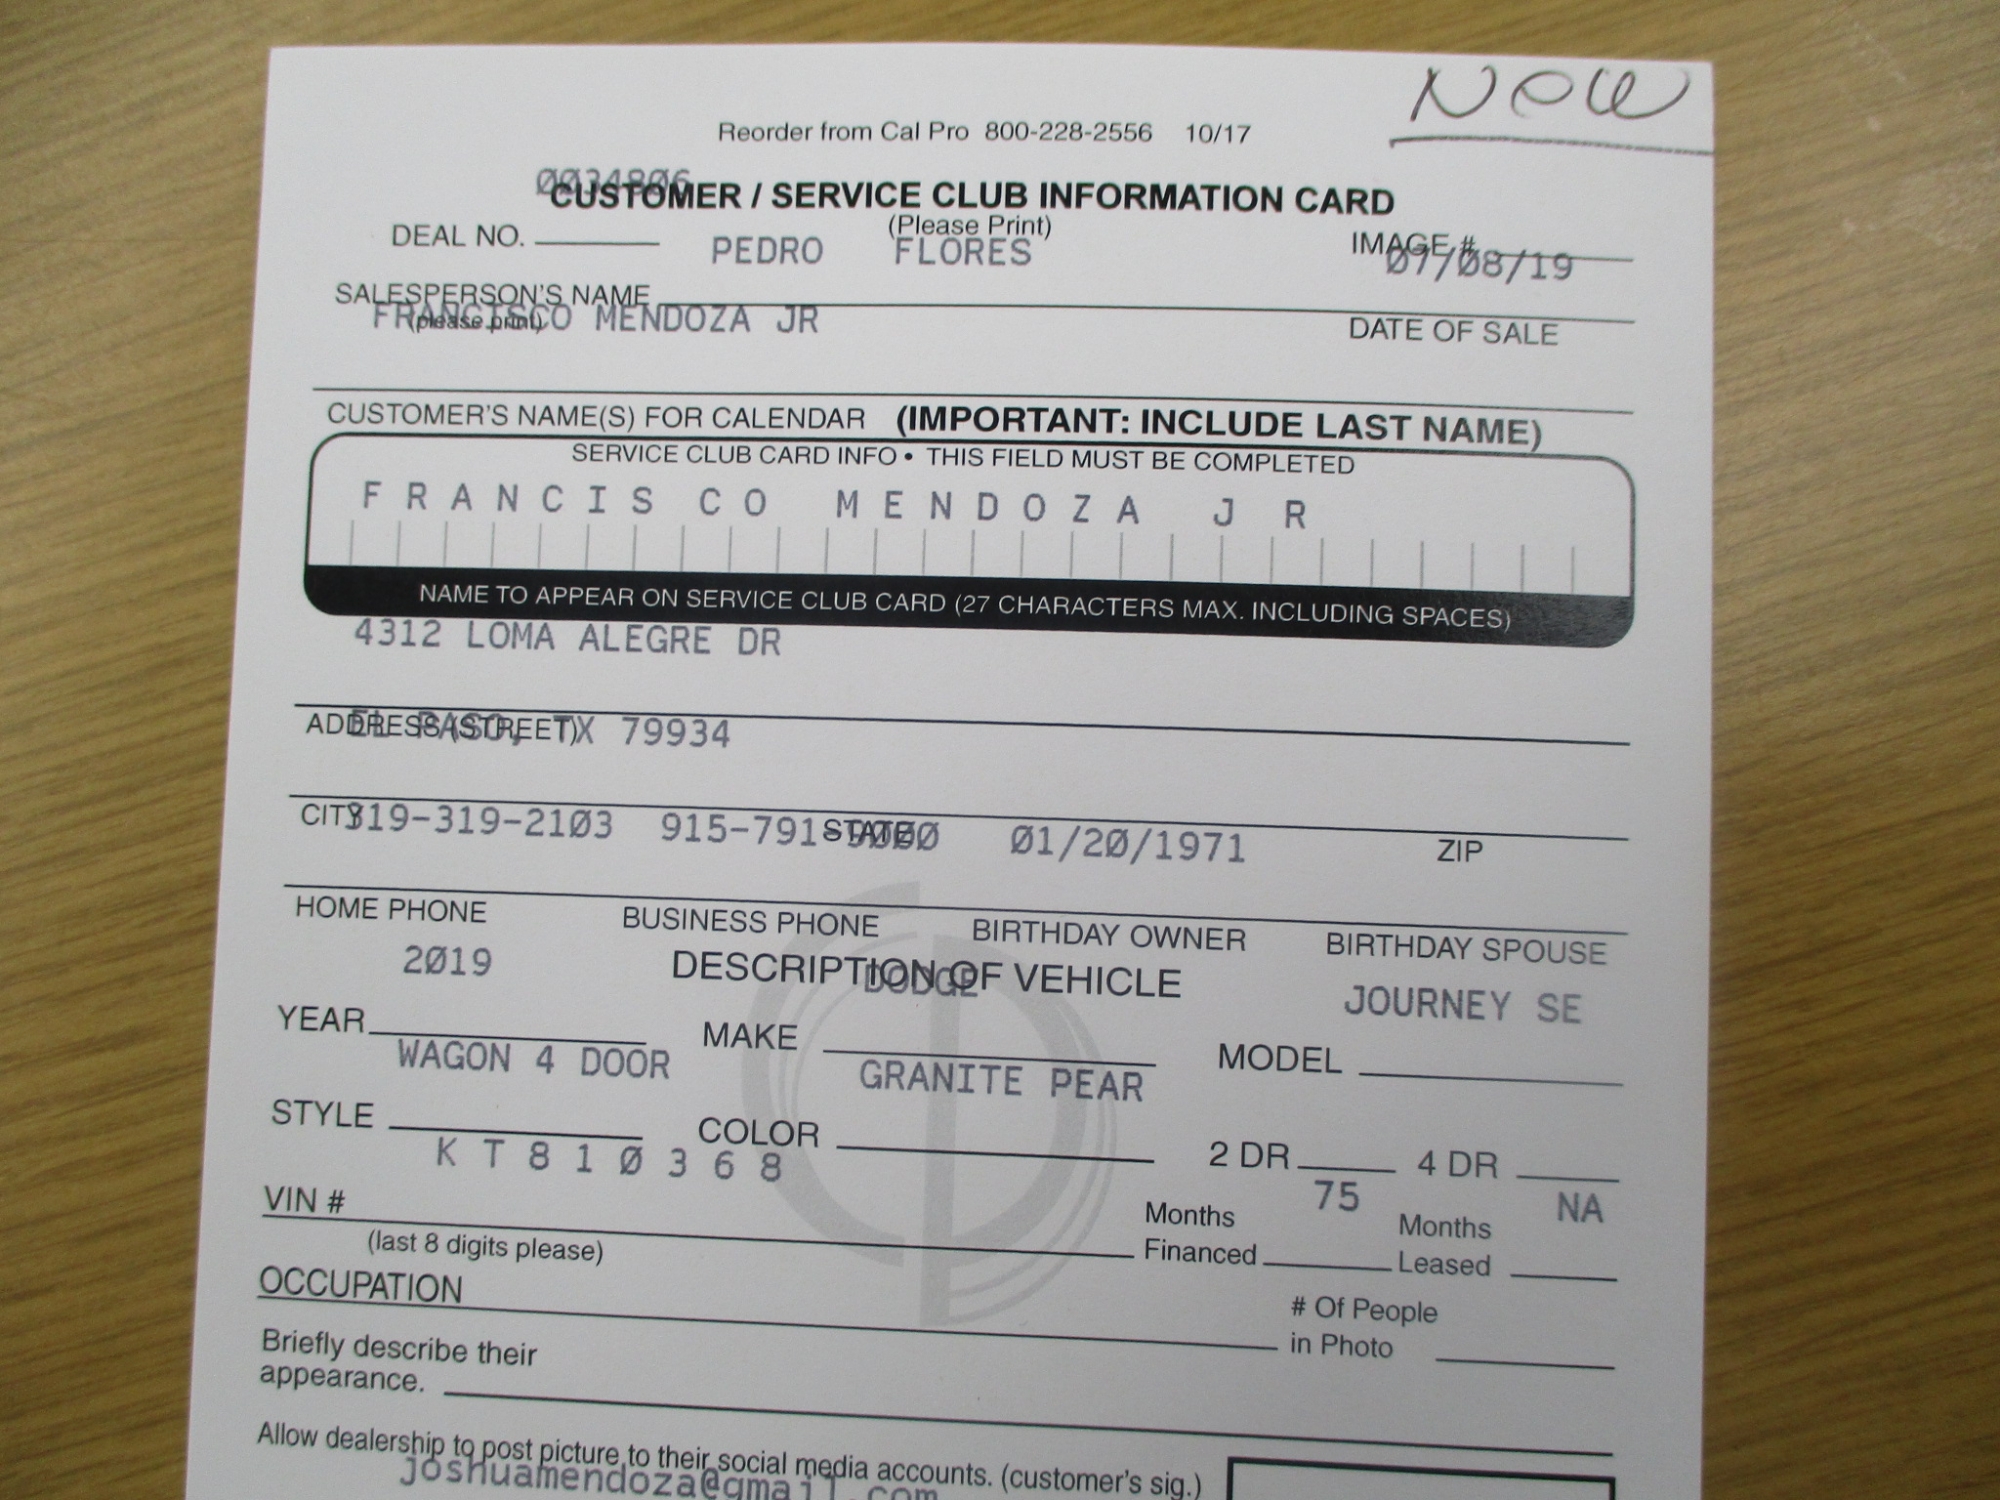 New
Reorder from Cal Pro 800-228-2556 10/17
0034806
CUSTOMER / SERVICE CLUB INFORMATION CARD
(Please Print)
DEAL NO. PEDRO FLORES IMAGE #
07/08/19
SALESPERSON'S NAME
(please print) FRANCISCO MENDOZA JR DATE OF SALE
CUSTOMER'S NAME(S) FOR CALENDAR (IMPORTANT: INCLUDE LAST NAME)
SERVICE CLUB CARD INFO • THIS FIELD MUST BE COMPLETED
FRANCISCO MENDOZA JR
NAME TO APPEAR ON SERVICE CLUB CARD (27 CHARACTERS MAX. INCLUDING SPACES)
4312 LOMA ALEGRE DR
ADDRESS (STREET) EL PASO, TX 79934
CITY 319-319-2103 915-791- STATE 01/20/1971 ZIP
HOME PHONE BUSINESS PHONE BIRTHDAY OWNER BIRTHDAY SPOUSE
DESCRIPTION OF VEHICLE
YEAR 2019 MAKE DODGE MODEL JOURNEY SE
STYLE WAGON 4 DOOR COLOR GRANITE PEAR 2 DR 4 DR
VIN # KT810368 Months Financed 75 Months Leased NA
(last 8 digits please)
OCCUPATION # Of People in Photo
Briefly describe their
appearance.
Allow dealership to post picture to their social media accounts. (customer's sig.)
joshuamendoza@gmail.com